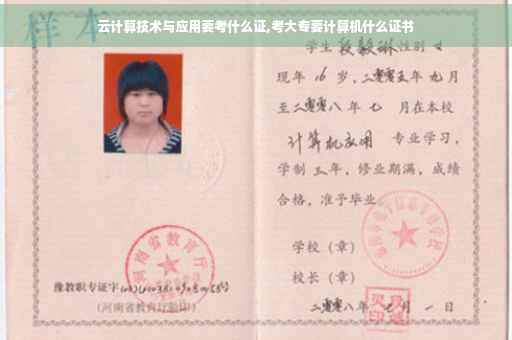 样本
云计算技术与应用要考什么证,考大专要计算机什么证书
学生 段毅琳 性别 女
现年 16 岁，二零零五年 九 月
至二零零八 年 七 月在本校
计算机应用 专业学习，
学制 三 年，修业期满，成绩
合格，准予毕业。
学校（章）
校长（章）
二零零八年 七 月 一 日
河南省教育厅
豫教职专证字
（河南省教育厅验印）